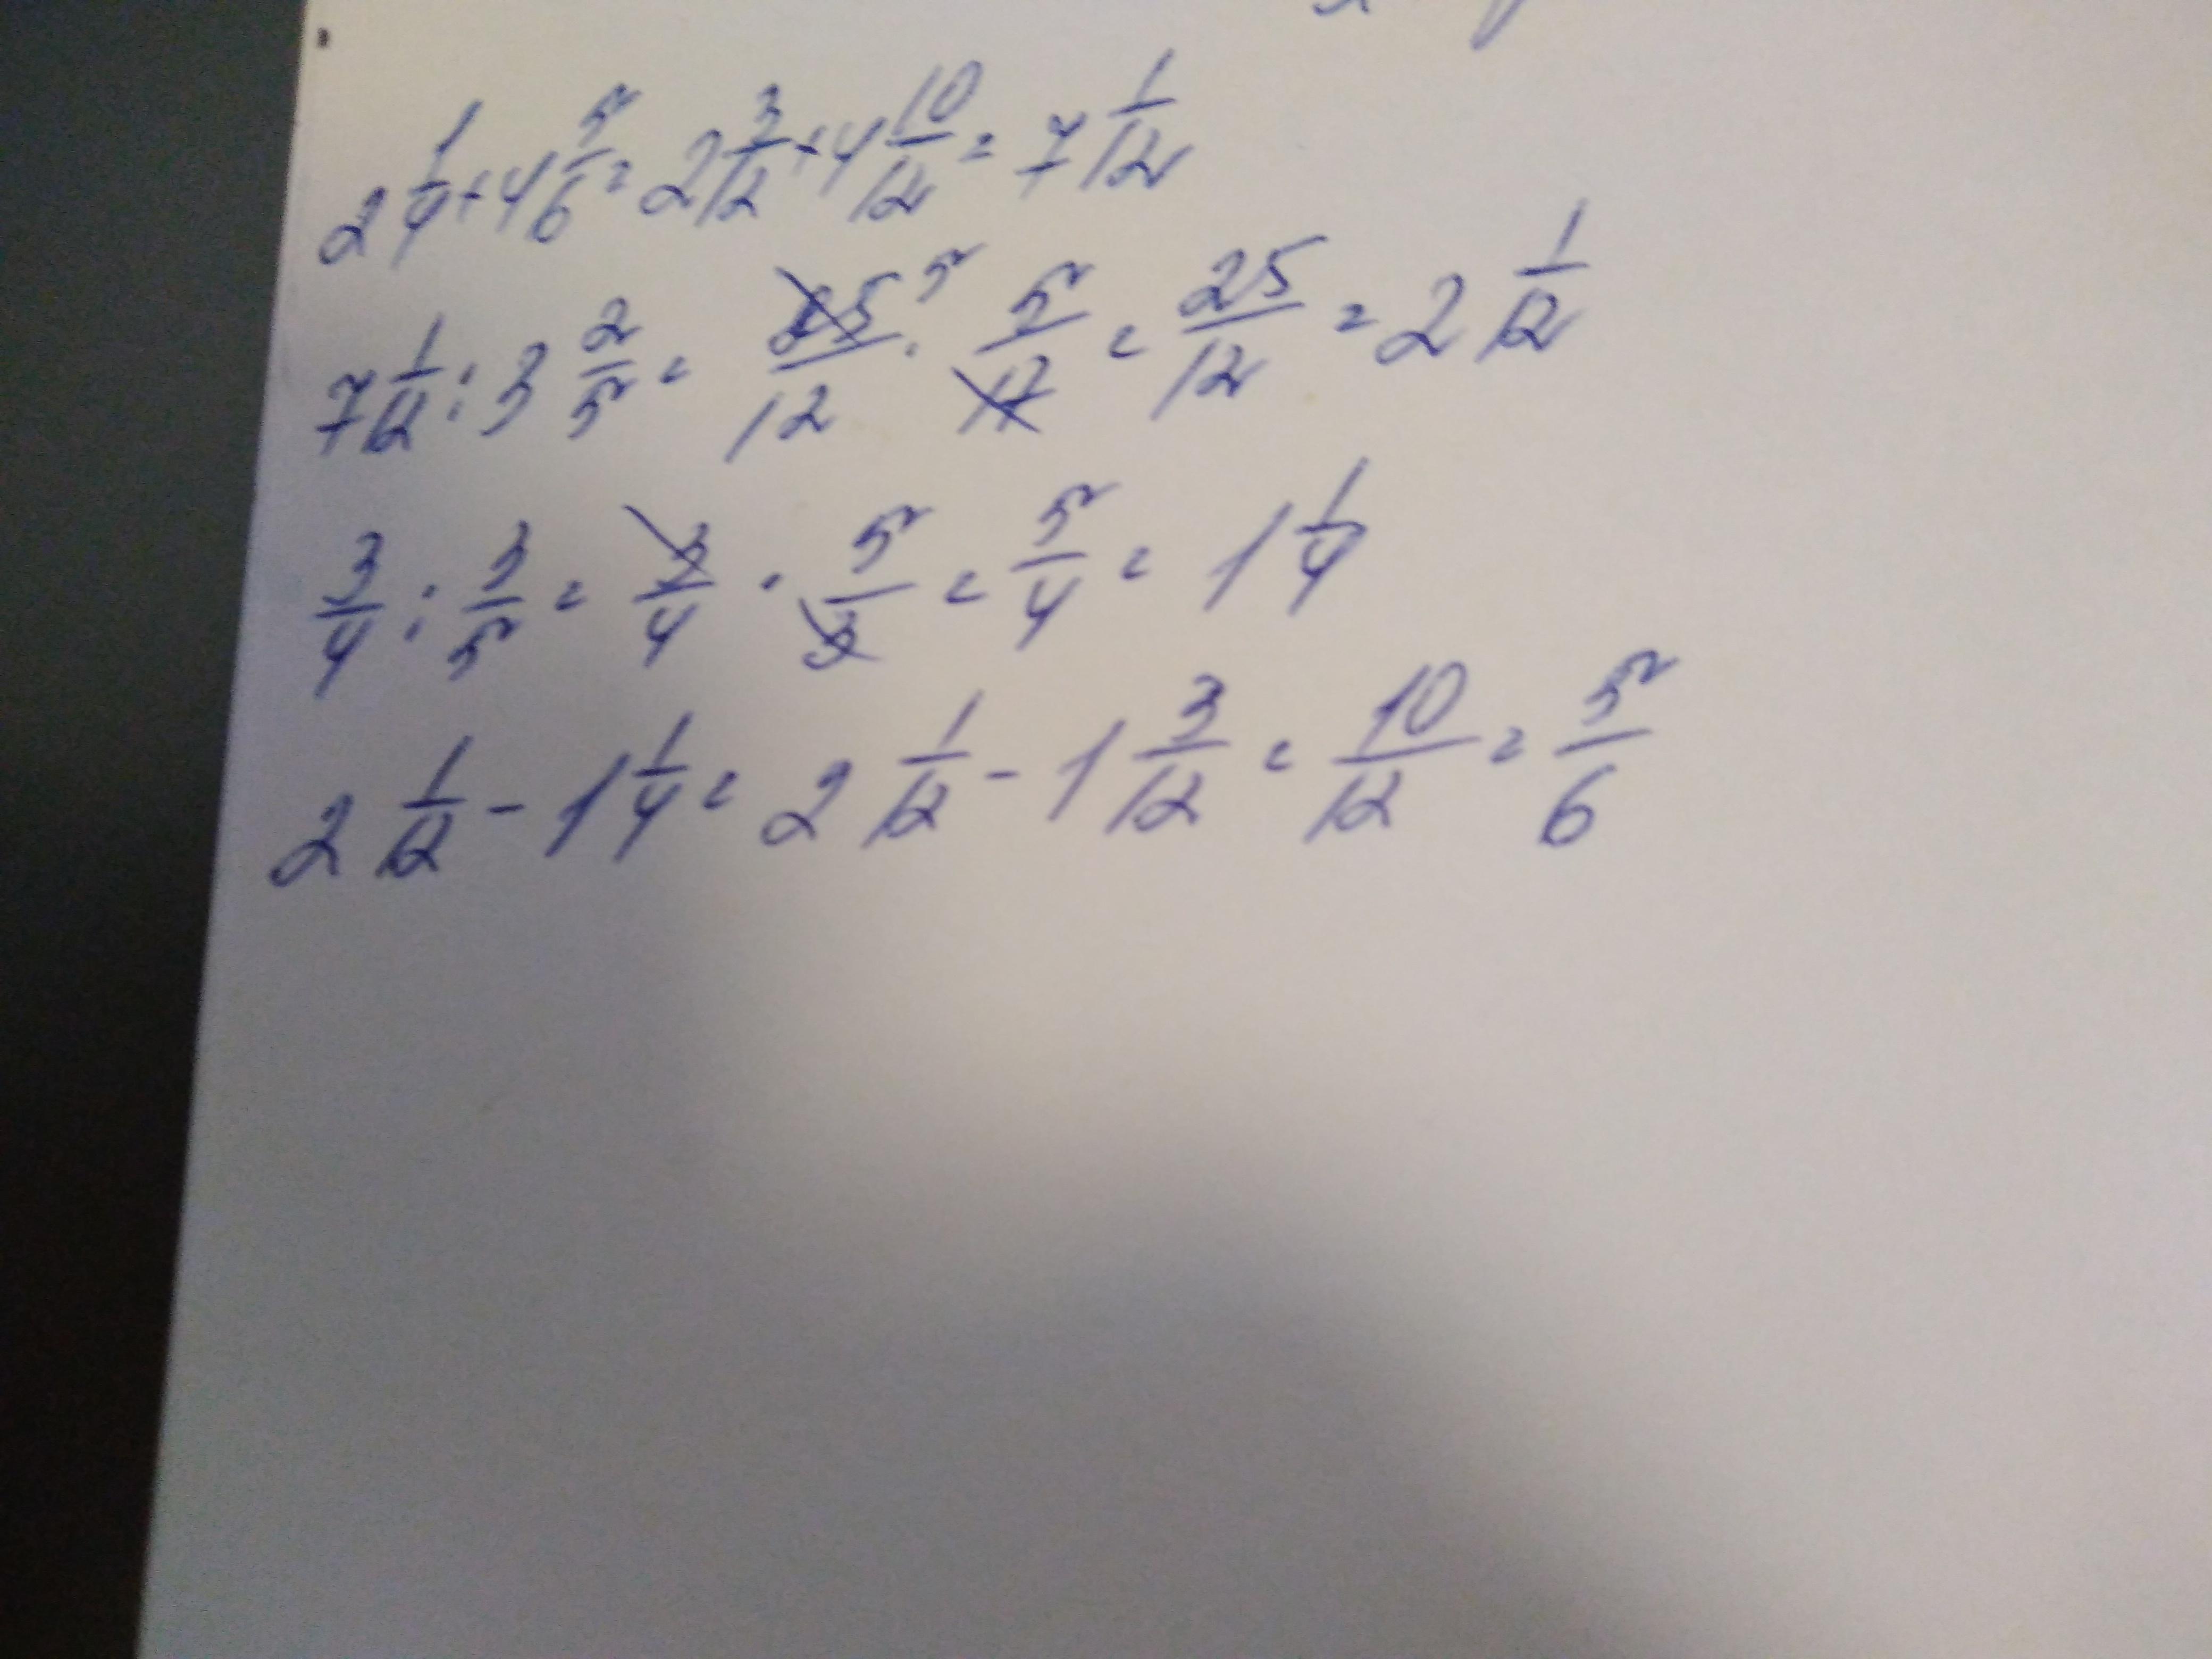 2 1/4 + 4 5/6 = 2 3/12 + 4 10/12 = 7 1/12
7 1/12 : 3 2/5 = 85/12 5 · 5/17 = 25/12 = 2 1/12
3/4 : 3/5 = 3/4 · 5/3 = 5/4 = 1 1/4
2 1/12 - 1 1/4 = 2 1/12 - 1 3/12 = 10/12 = 5/6